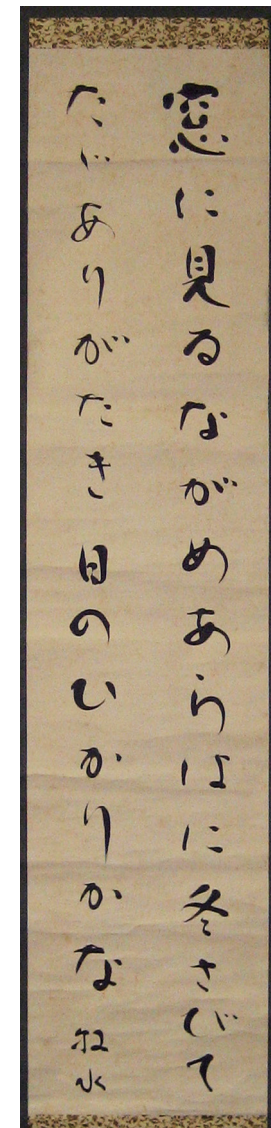 窓に見るながめあらはに冬さびて
たゞありがたき日のひかりかな 牧水